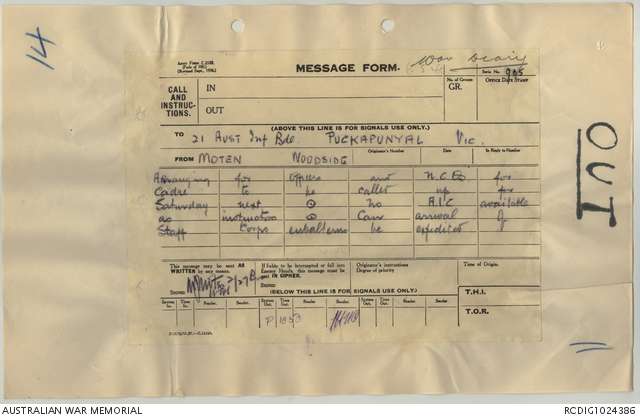 14
Army Form C.2128.
(Pads of 100.)
(Revised Sept., 1936.)
MESSAGE FORM.
War Diary
Serial No. 905
CALL AND INSTRUCTIONS.
IN
OUT
No. of Groups
GR.
OFFICE DATE STAMP
(ABOVE THIS LINE IS FOR SIGNALS USE ONLY.)
TO 21 Aust Inf Bde PUCKAPUNYAL Vic.
FROM MOTEN WOODSIDE
Originator's Number
Date
In Reply to Number
Arranging for officers and N.C.Os for
Cadre to be called up for
Saturday next ⊙ no A.I.C available
as instructors ⊙ Can arrival of
Staff Corps be expedited
This message may be sent AS WRITTEN by any means.
If liable to be intercepted or fall into Enemy Hands, this message must be sent IN CIPHER.
Originator's instructions
Degree of priority
Time of Origin.
SIGNED
SIGNED
(BELOW THIS LINE IS FOR SIGNALS USE ONLY.)
T.H.I.
T.O.R.
System In.
Time In.
Reader.
Sender.
System Out.
Time Out.
Reader.
Sender.
System Out.
Time Out.
Reader.
Sender.
P 1853
OUT
AUSTRALIAN WAR MEMORIAL
RCDIG1024386